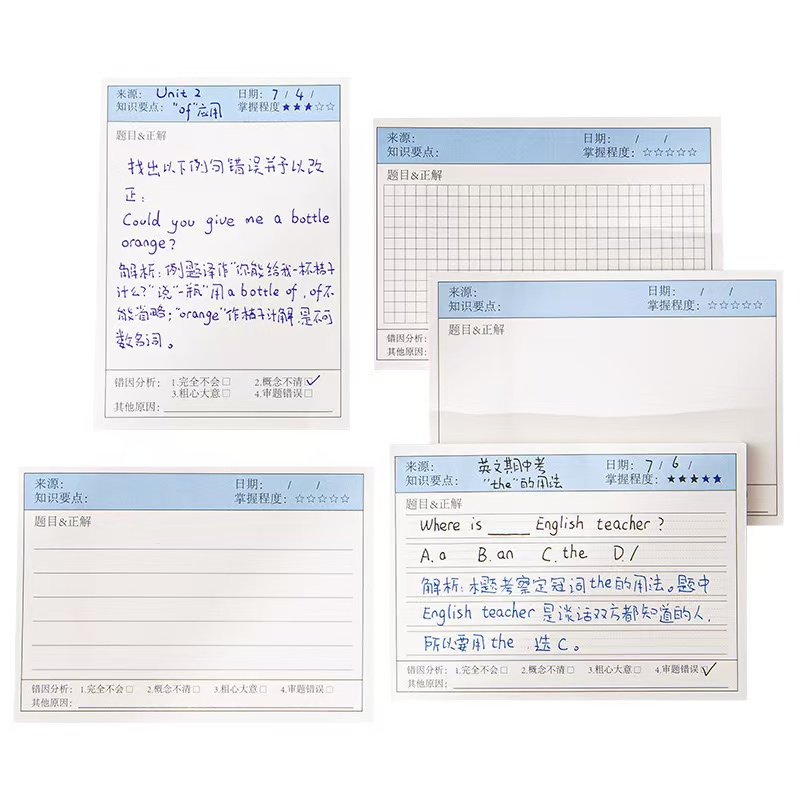 来源: Unit 2 日期: 7 / 4 /
知识要点: "of"应用 掌握程度★★★☆☆
题目&正解
找出以下例句错误并予以改
正:
Could you give me a bottle
orange?
解析:例题译作"你能给我一杯桔子
汁么?"说"一瓶"用a bottle of,of不
能省略;"orange"作桔子汁解,是不可
数名词。
错因分析: 1.完全不会□ 2.概念不清☑
3.粗心大意□ 4.审题错误□
其他原因:
来源: 日期: / /
知识要点: 掌握程度: ☆☆☆☆☆
题目&正解
错因分析:
其他原因:
来源: 日期: / /
知识要点: 掌握程度: ☆☆☆☆☆
题目&正解
来源: 日期: / /
知识要点: 掌握程度: ☆☆☆☆☆
题目&正解
错因分析: 1.完全不会□ 2.概念不清□ 3.粗心大意□ 4.审题错误□
其他原因:
来源: 英文期中考 日期: 7 / 6 /
知识要点: "the"的用法 掌握程度: ★★★★★
题目&正解
Where is ____ English teacher?
A. a B. an C. the D. /
解析:本题考察定冠词the的用法。题中
English teacher 是谈话双方都知道的人,
所以要用the,选C。
错因分析: 1.完全不会□ 2.概念不清□ 3.粗心大意□ 4.审题错误☑
其他原因: